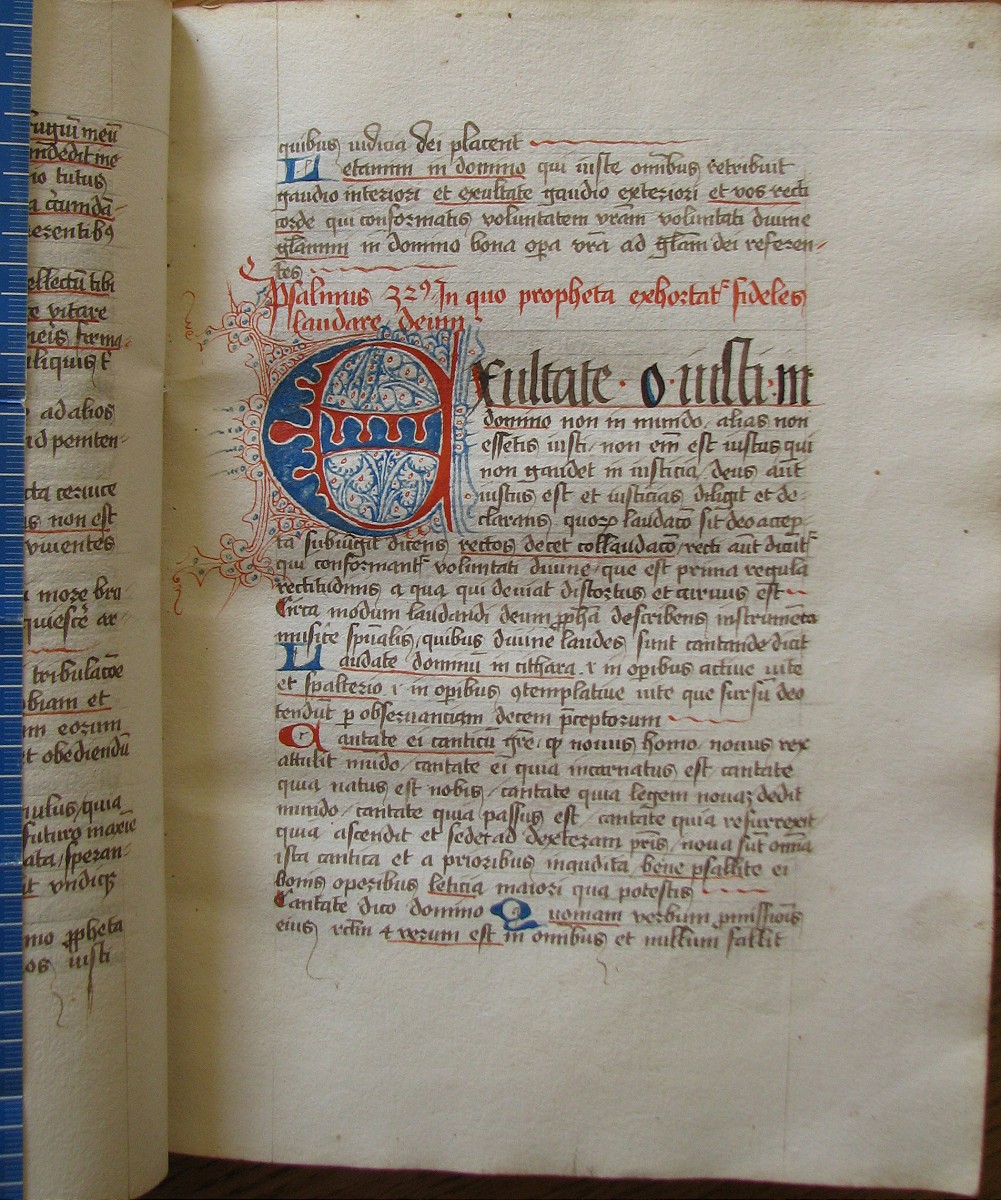 fugiū meū
indedit me
io tutus
a cūmdā-
erentibꝯ
ellectū tibi
e vitare
ieīs firma-
liquis t
ad alios
id peniten-
cta cervice
s non est
viventes
more bru
quiescē ar-
tribulacōe
biam et
m eorum
t obediendū
ulus/quia
futuro maxīe
ata/speran-
t undiqꝫ
mo ꝓpheta
os iusti
quibus iudicia dei placent
Letamini in domino qui iuste omībus retribuit
gaudio interiori et exultate gaudio exteriori et vos recti
corde qui conformatis voluntatem vram voluntati divine
gl̄amini in domino bona oꝑa vrā ad gl̄am dei referen-
tes
Psalmus 32ꝯ In quo propheta exhortatᷣ fideles
laudare deum
Exultate · o · iusti · in
domino non in mundo, alias non
essetis iusti/ non eim̄ est iustus qui
non gaudet in iusticia/ deus aūt
iustus est et iusticias diligit et de-
clarans quoꝝ laudacō sit deo accep
ta subiūgit dicens rectos decet collaudacō/ recti aūt dicūtᷣ
qui conformantᷣ voluntati divine/ que est prima regula
rectitudinis a qua qui deviat distortus et curvus est
Circa modum laudandi deum ꝓph̄a describens instrumēta
musice spūalis/ quibus divine laudes sunt cantande dicit
Laudate dominū in cithara .i. in oꝑibus active vite
et spalterio .i. in oꝑibus ꝯtemplative vite que sursū deo
tendūt ꝑ observanciam decem p̄ceptorum
Cantate ei canticū gr̄e/ ꝙ novus homo/ novus rex
attulit mūdo/ cantate ei quia incarnatus est cantate
quia natus est nobis/ cantate quia legem novaꝫ dedit
mundo/ cantate quia passus est/ cantate quia resurrexit
quia ascendit et sedet ad dexteram pr̄is/ nova sūt omīa
ista cantica et a prioribus inaudita/ bene psallite ei
bonis operibus leticia maiori qua potestis
Cantate dico domino Quoniam verbum ꝓmissiōis
eius rectū & verum est in omnibus et nullum fallit